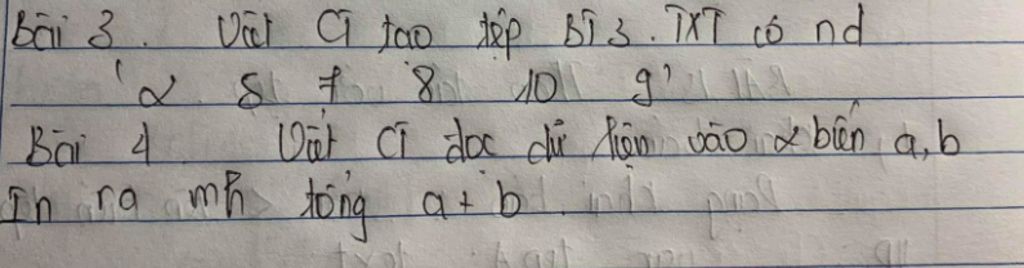 Bài 3. Viết CT tạo tệp BT3.TXT có nd
'2 5 7 8 10 9'
Bài 4 Viết CT đọc dữ liệu vào 2 biến a, b
In ra mh tổng a + b